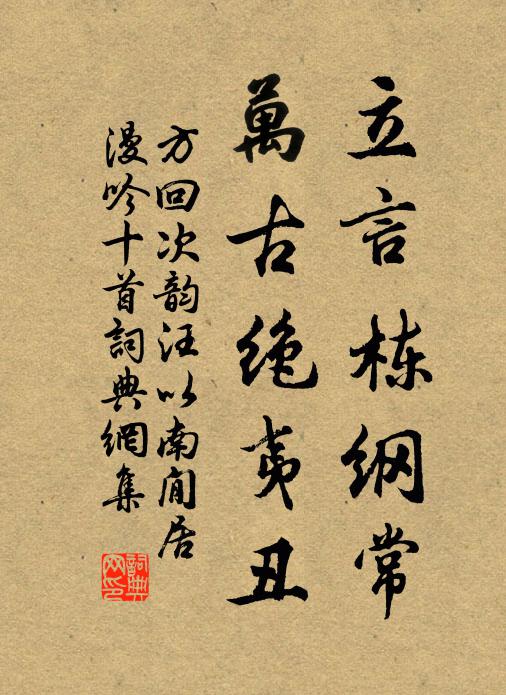 立言栋纲常
萬古绝夷丑
方回次韵汪以南闲居
漫吟十首詞典網集
詞典网印